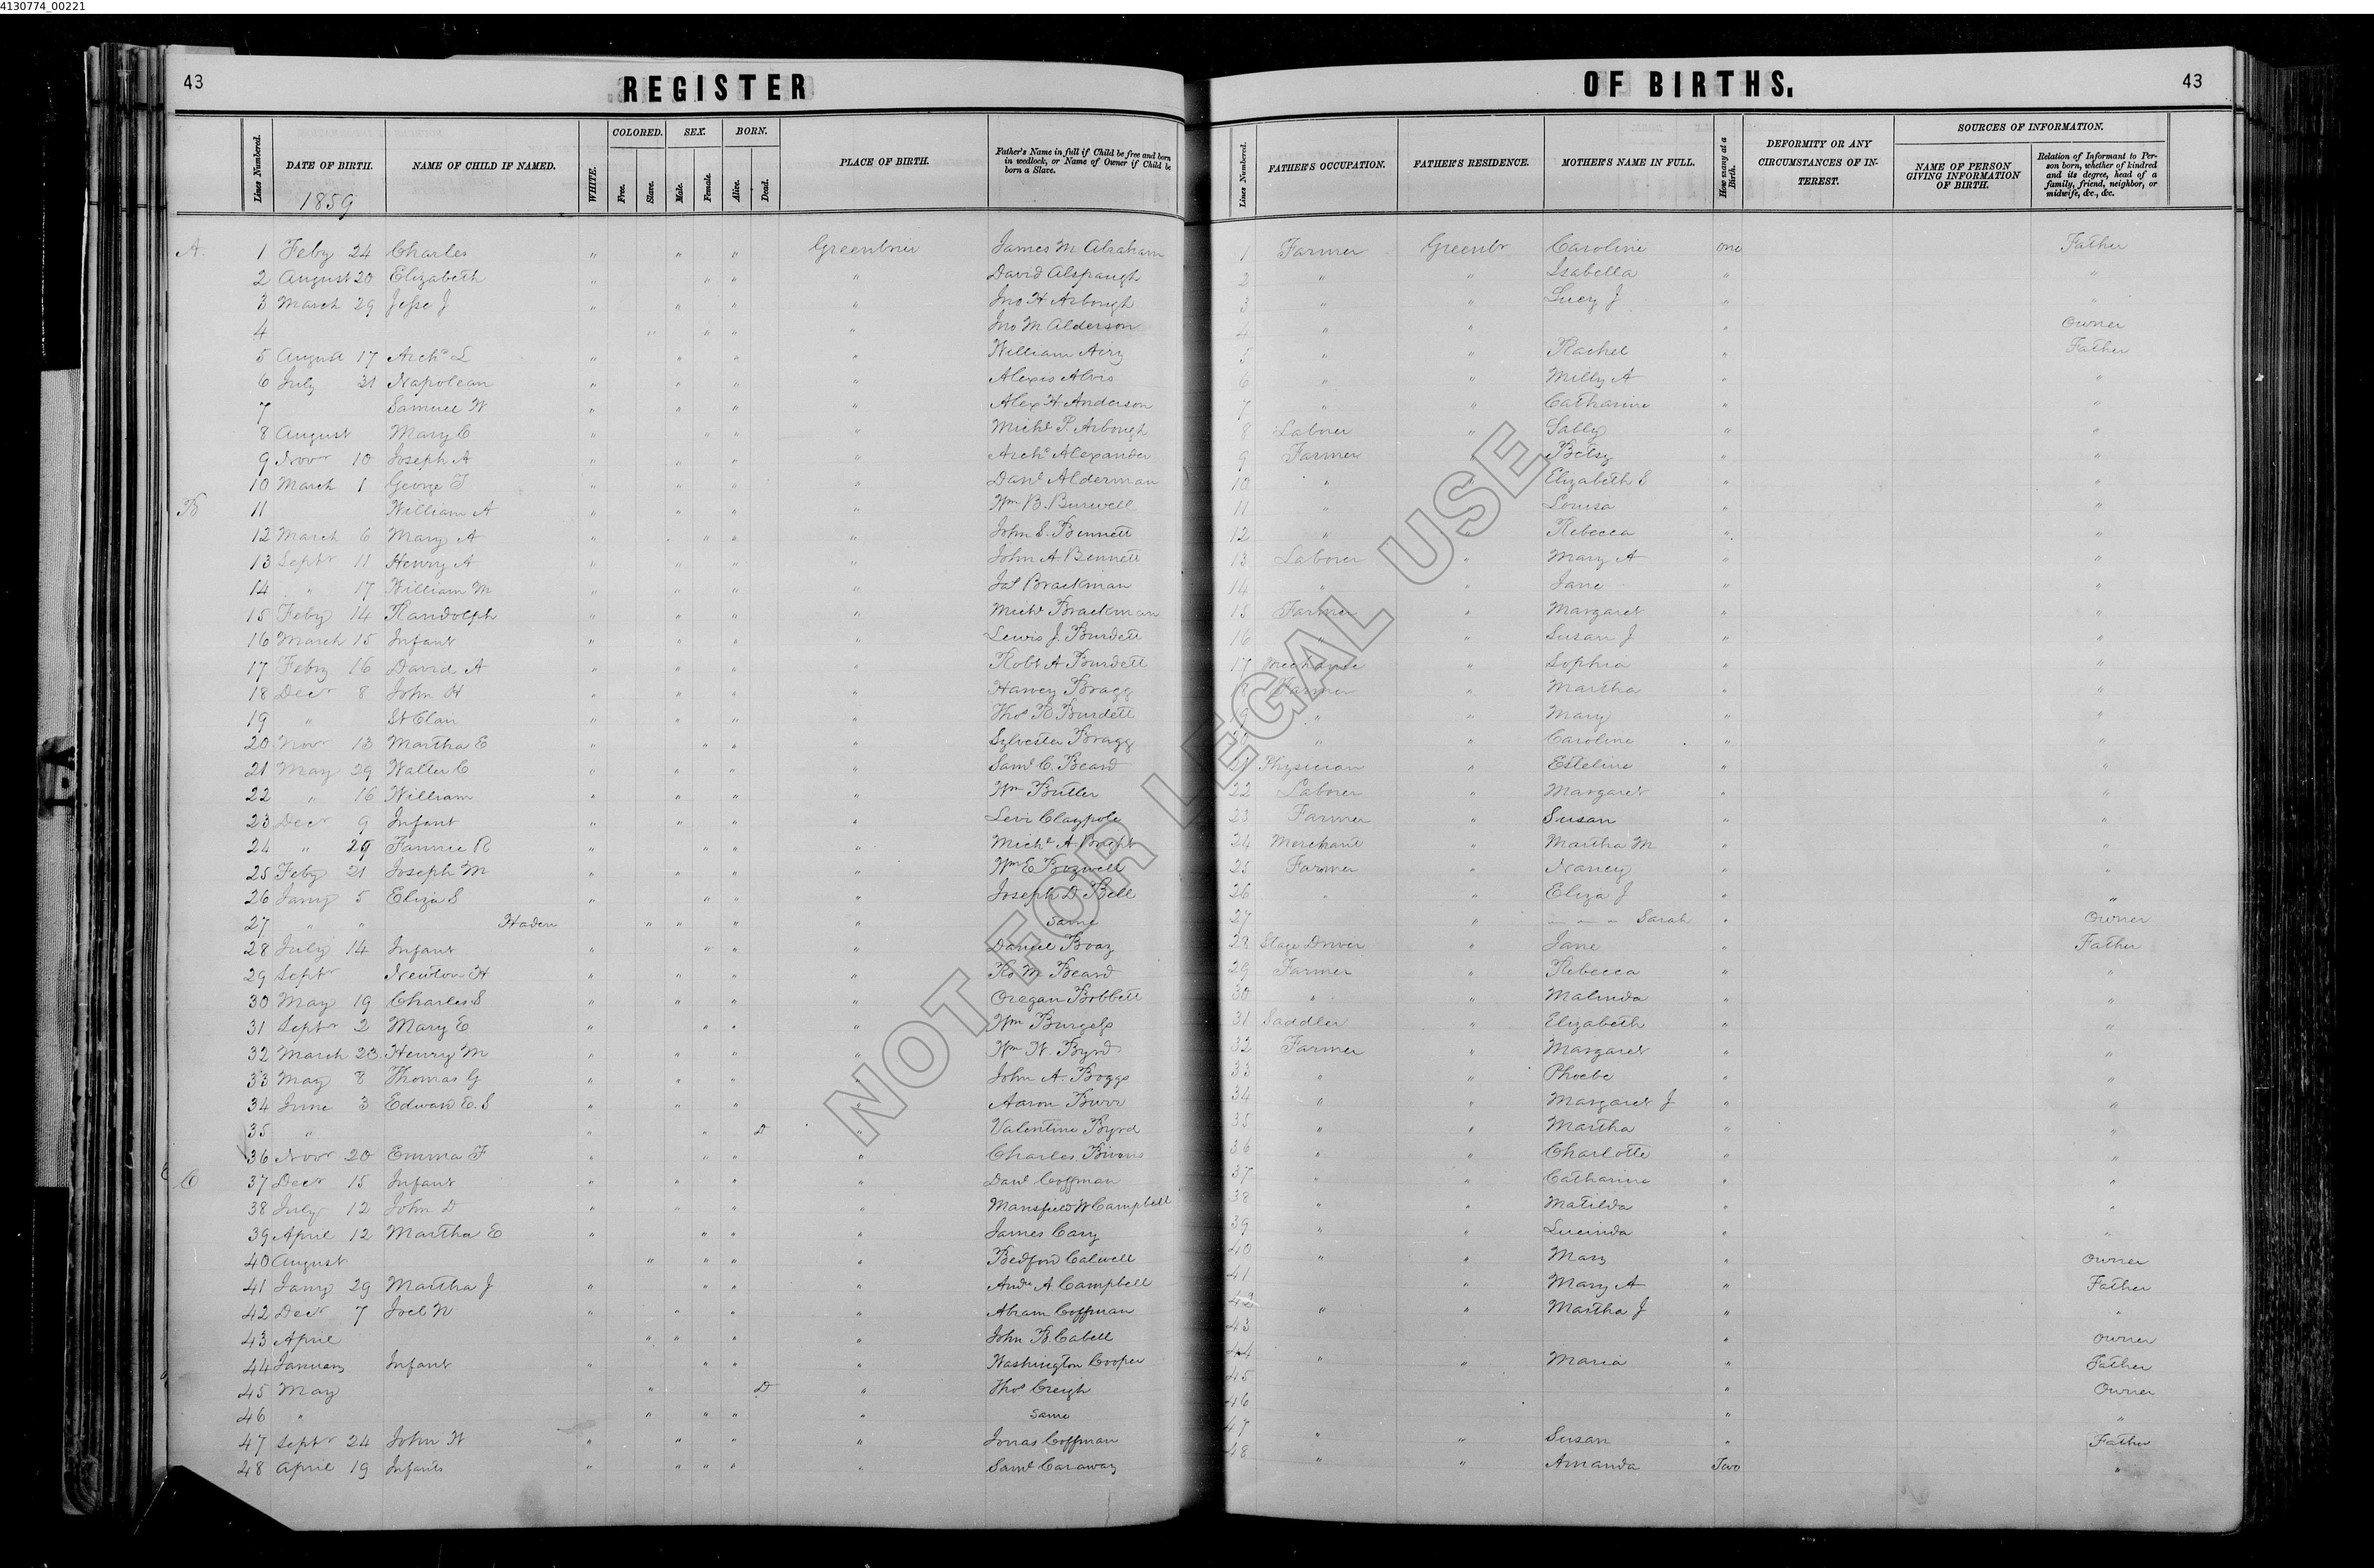 4130774_00221
43 REGISTER OF BIRTHS. 43
Lines Numbered. DATE OF BIRTH. NAME OF CHILD IF NAMED. WHITE. COLORED. Free. Slave. SEX. Male. Female. BORN. Alive. Dead. PLACE OF BIRTH. Father's Name in full if Child be free and born in wedlock, or Name of Owner if Child be born a Slave. Lines Numbered. FATHER'S OCCUPATION. FATHER'S RESIDENCE. MOTHER'S NAME IN FULL. How many at a Birth. DEFORMITY OR ANY CIRCUMSTANCES OF INTEREST. SOURCES OF INFORMATION. NAME OF PERSON GIVING INFORMATION OF BIRTH. Relation of Informant to Person born, whether of kindred and its degree, head of a family, friend, neighbor, or midwife, &c., &c.
1859
A. 1 Feby 24 Charles " " " Greenbrier James M Abraham 1 Farmer Greenbr Caroline one Father
2 August 20 Elizabeth " " " " David Alspaugh 2 " " Isabella " "
3 March 29 Jesse J " " " " Jno H Arbough 3 " " Lucy J " "
4 " " " " Jno M Alderson 4 " " " Owner
5 August 17 Archd L " " " " William Airy 5 " " Rachel " Father
6 July 31 Napolean " " " " Alexis Alvis 6 " " Milly A " "
7 Samuel W " " " " Alex H. Anderson 7 " " Catharine " "
8 August Mary C " " " " Michl P. Arbough 8 Laborer " Sally " "
9 Novr 10 Joseph A " " " " Archd Alexander 9 Farmer " Betsy " "
10 March 1 George T " " " " Danl Alderman 10 " " Elizabeth S " "
B 11 William A " " " " Wm B. Burwell 11 " " Louisa " "
12 March 6 Mary A " " " " John S. Bennett 12 " " Rebecca " "
13 Septr 11 Henry A " " " " John A. Bennett 13 Laborer " Mary A " "
14 " 17 William M " " " " Jas Brackman 14 " " Jane " "
15 Feby 14 Randolph " " " " Michl Brackman 15 Farmer " Margaret " "
16 March 15 Infant " " " " Lewis J. Burdett 16 " " Susan J " "
17 Feby 16 David A " " " " Robt A Burdett 17 Mechanic " Sophia " "
18 Decr 8 John H " " " " Harvey Bragg 18 Farmer " Martha " "
19 " St Clair " " " " Thos R Burdett 19 " " Mary " "
20 Novr 13 Martha E " " " " Sylvester Bragg 20 " " Caroline " "
21 May 29 Walter C " " " " Saml C. Beard 21 Physician " Esteline " "
22 " 16 William " " " " Wm Butler 22 Laborer " Margaret " "
23 Decr 9 Infant " " " " Levi Claypole 23 Farmer " Susan " "
24 " 29 Fannie R " " " " Michl A Bright 24 Merchant " Martha M " "
25 Feby 21 Joseph M " " " " Wm E Bozwell 25 Farmer " Nancy " "
26 Jany 5 Eliza S " " " " Joseph D Bell 26 " " Eliza J " "
27 " " Haden " " " " Same 27 " — — — Sarah " Owner
28 July 14 Infant " " " " Daniel Boaz 28 Stage Driver " Jane " Father
29 Septr Newton H " " " " Ro M Beard 29 Farmer " Rebecca " "
30 May 19 Charles S " " " " Oregan Bobbett 30 " " Malinda " "
31 Septr 2 Mary E " " " " Wm Burgess 31 Saddler " Elizabeth " "
32 March 23 Henry M " " " " Wm W. Byrd 32 Farmer " Margaret " "
33 May 8 Thomas G " " " " John A. Boggs 33 " " Phoebe " "
34 June 3 Edward E. S " " " " Aaron Burr 34 " " Margaret J " "
35 " " " D " Valentine Byrd 35 " " Martha " "
36 Novr 20 Emma F " " " " Charles Bivens 36 " " Charlotte " "
C 37 Decr 15 Infant " " " " Danl Coffman 37 " " Catharine " "
38 July 12 John D " " " " Mansfield W Campbell 38 " " Matilda " "
39 April 12 Martha E " " " " James Cary 39 " " Lucinda " "
40 August " " " " Bedford Calwell 40 " " Mary " Owner
41 Jany 29 Martha J " " " " Andw A Campbell 41 " Mary A " Father
42 Decr 7 Joel N " " " " Abram Coffman 42 " " Martha J " "
43 April " " " " John B. Cabell 43 " Owner
44 January Infant " " " " Washington Cooper 44 " " Maria " Father
45 May " D " Thos Creigh 45 " Owner
46 " " " " " Same 46 " "
47 Septr 24 John W " " " " Jonas Coffman 47 " " Susan " Father
48 April 19 Infants " " " " " Saml Caraway 48 " " Amanda Two "
NOT FOR LEGAL USE